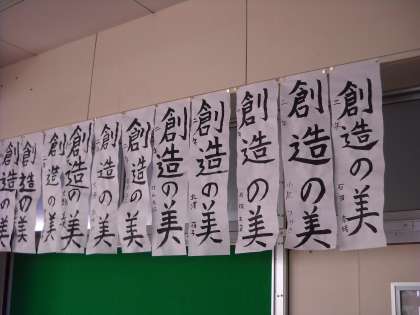 創造の美
創造の美
創造の美
創造の美
創造の美
創造の美
創造の美
創造の美
創造の美
創造の美
創造の美